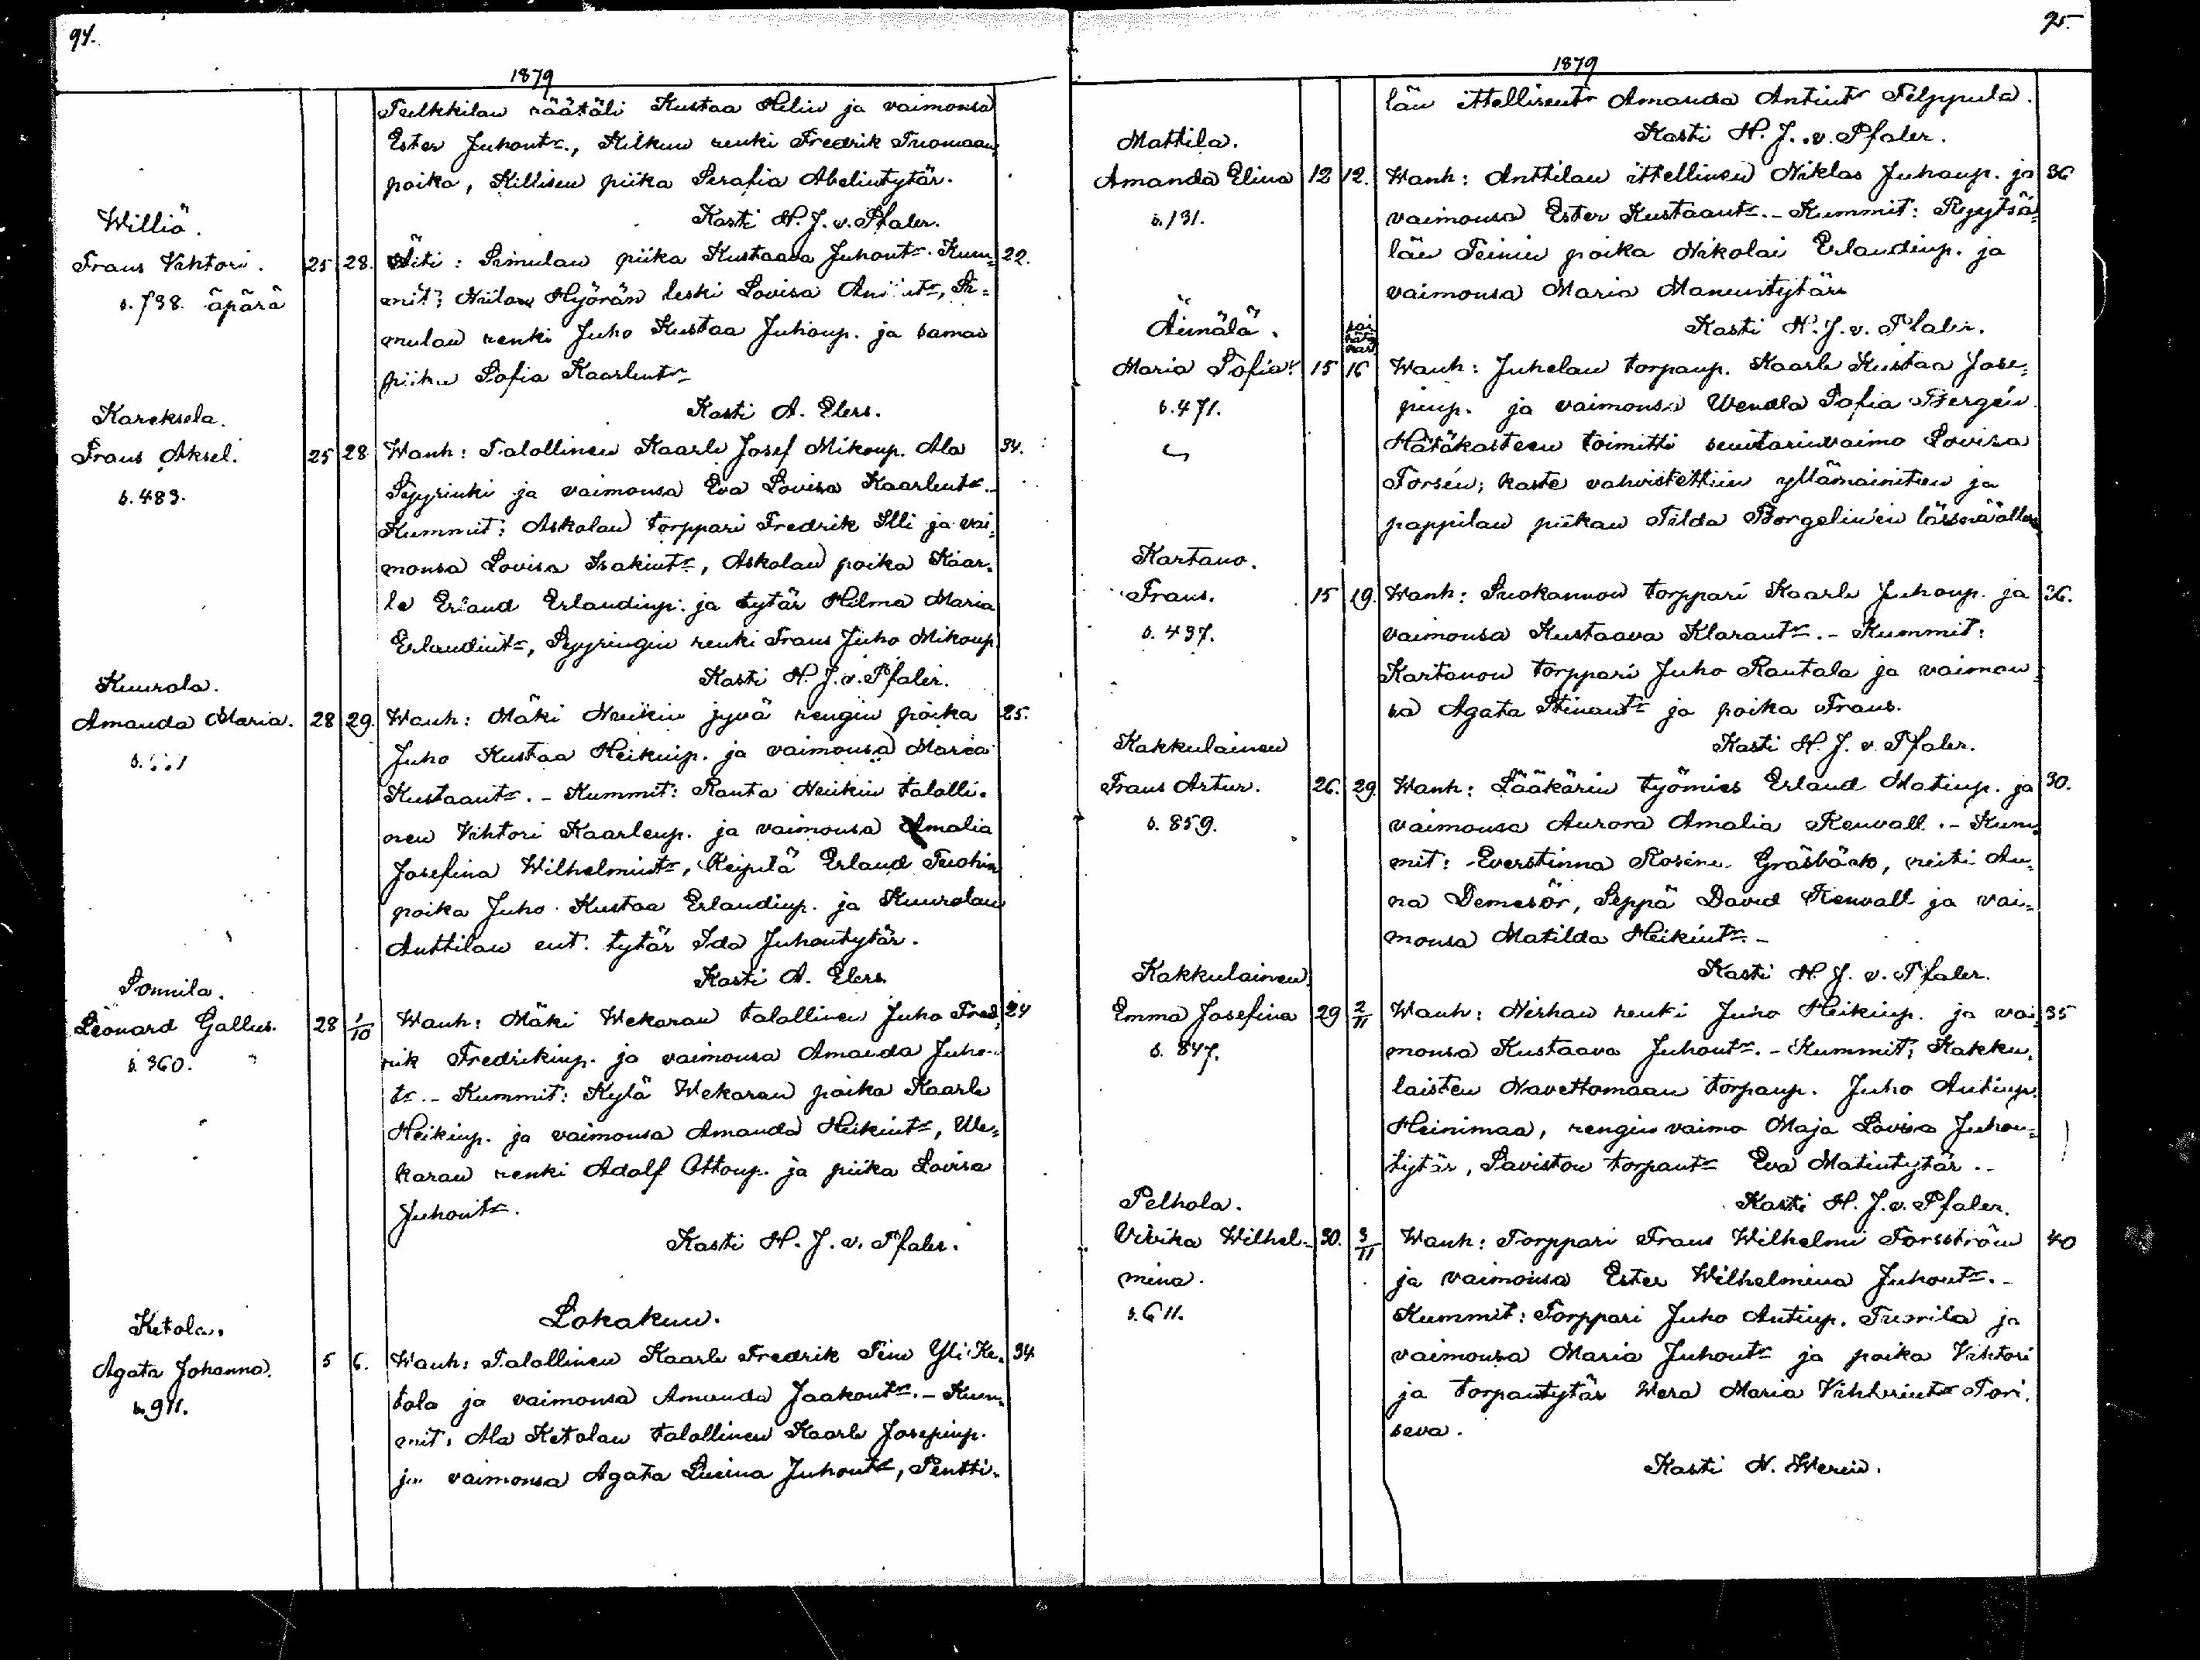 94.
1879
Tulkkilan räätäli Kustaa Helin ja vaimonsa
Ester Juhontr., Kilkun renki Fredrik Tuomaan
poika, Killisen piika Serafia Abelintytär.
Kasti H. J. v. Pfaler.
Williä.
Frans Vihtori. 25 28. Äiti: Simulan piika Kustaava Juhontr. Kum= 22.
s. 738. äpärä
mit: Niilon Hyörän leski Lovisa Antintr, Si=
mulan renki Juho Kustaa Juhonp. ja saman
piika Sofia Kaarlentr
Kasti A. Elers.
Kareksela.
Frans Aksel. 25 28 Wanh: Talollinen Kaarle Josef Mikonp. Ala 34.
s. 483.
Pyyrinki ja vaimonsa Eva Lovisa Kaarlentr.-
Kummit: Askolan torppari Fredrik Illi ja vai=
monsa Lovisa Isakintr, Askolan poika Kaar=
le Erland Erlandinp. ja tytär Hilma Maria
Erlandintr, Pyyringin renki Frans Juho Mikonp
Kasti H. J. v. Pfaler.
Kuurola.
Amanda Maria. 28 29. Wanh: Mäki Nuikin jyvä rengin poika 25.
Juho Kustaa Heikinp. ja vaimonsa Maria
Kustaantr. - Kummit: Ranta Nuikin talolli=
nen Vihtori Kaarlenp. ja vaimonsa Amalia
Josefina Wilhelmintr, Keipilä Erland Tuohin
poika Juho Kustaa Erlandinp. ja Kuurolan
Anttilan ent. tytär Ida Juhontytär.
Kasti A. Elers
Sonnila.
Leonard Gallus. 28 1/10 Wanh: Mäki Wekaran talollinen Juho Fred= 24
s. 360.
rik Fredrikinp. ja vaimonsa Amanda Juhon
tr. - Kummit: Kylä Wekaran poika Kaarle
Heikinp. ja vaimonsa Amanda Heikintr, We=
karan renki Adolf Ottonp. ja piika Lovisa
Juhontr.
Kasti H. J. v. Pfaler.
Lokakuu.
Ketola.
Agata Johanna. 5 6. Wanh: Talollinen Kaarle Fredrik Pinn Yli Ke= 34
s. 911.
tola ja vaimonsa Amanda Jaakontr. - Kum=
mit: Ala Ketolan talollinen Kaarle Josepinp.
ja vaimonsa Agata Lusina Juhontr, Pentti=
95.
1879
län ittellisentr Amanda Antintr Pelppula.
Kasti H. J. v. Pfaler.
Mattila.
Amanda Elina 12 12. Wanh: Anttilan ittellinen Niklas Juhonp. ja 36
s. 131.
vaimonsa Ester Kustaantr. - Kummit: Pyytsä=
län Peinin poika Nikolai Erlandinp. ja
vaimonsa Maria Manuntytär
Kasti H. J. v. Pfaler.
Äimälä.
Maria Sofia. 15 16 Wanh: Juhelan torpanp. Kaarle Kustaa Jose=
s. 471.
pinp. ja vaimonsa Wendla Sofia Bergén
Hätäkasteen toimitti senitarinvaimo Lovisa
Forsén; kaste vahvistettiin yllämainitun ja
pappilan piikan Tilda Borgelinin läsnäollen
Kartano.
Frans. 15 19. Wanh: Suokannon torppari Kaarle Juhonp. ja 36.
s. 437.
vaimonsa Kustaava Klarantr. - Kummit:
Kartanon torppari Juho Rautala ja vaimon=
sa Agata Stinantr ja poika Frans.
Kasti H. J. v. Pfaler.
Kakkulainen
Frans Artur. 26. 29. Wanh: Lääkärin työmies Erland Matinp. ja 30.
s. 859.
vaimonsa Aurora Amalia Renvall. - Kum=
mit: Everstinna Rosine Gräsbäck, neiti An=
na Demesör, Seppä David Renvall ja vai=
monsa Matilda Heikintr. -
Kasti H. J. v. Pfaler.
Kakkulainen
Emma Josefina 29 2/11 Wanh: Nirhan renki Juho Heikinp. ja vai= 35
s. 847.
monsa Kustaava Juhontr. - Kummit: Kakku=
laisten Navettomaan torpanp. Juho Antinp.
Heinimaa, rengin vaimo Maja Lovisa Juhon=
tytär, Saviston torpantr Eva Matintytär. -
Kasti H. J. v. Pfaler.
Pelhola.
Vivika Wilhel= 30. 3/11 Wanh: Torppari Frans Wilhelmi Forsström 40
mina.
s. 611.
ja vaimonsa Ester Wilhelmina Juhontr. -
Kummit: Torppari Juho Antinp. Tuorila ja
vaimonsa Maria Juhontr ja poika Vihtori
ja torpantytär Wera Maria Vihtorintr Tori=
seva.
Kasti N. Weren.